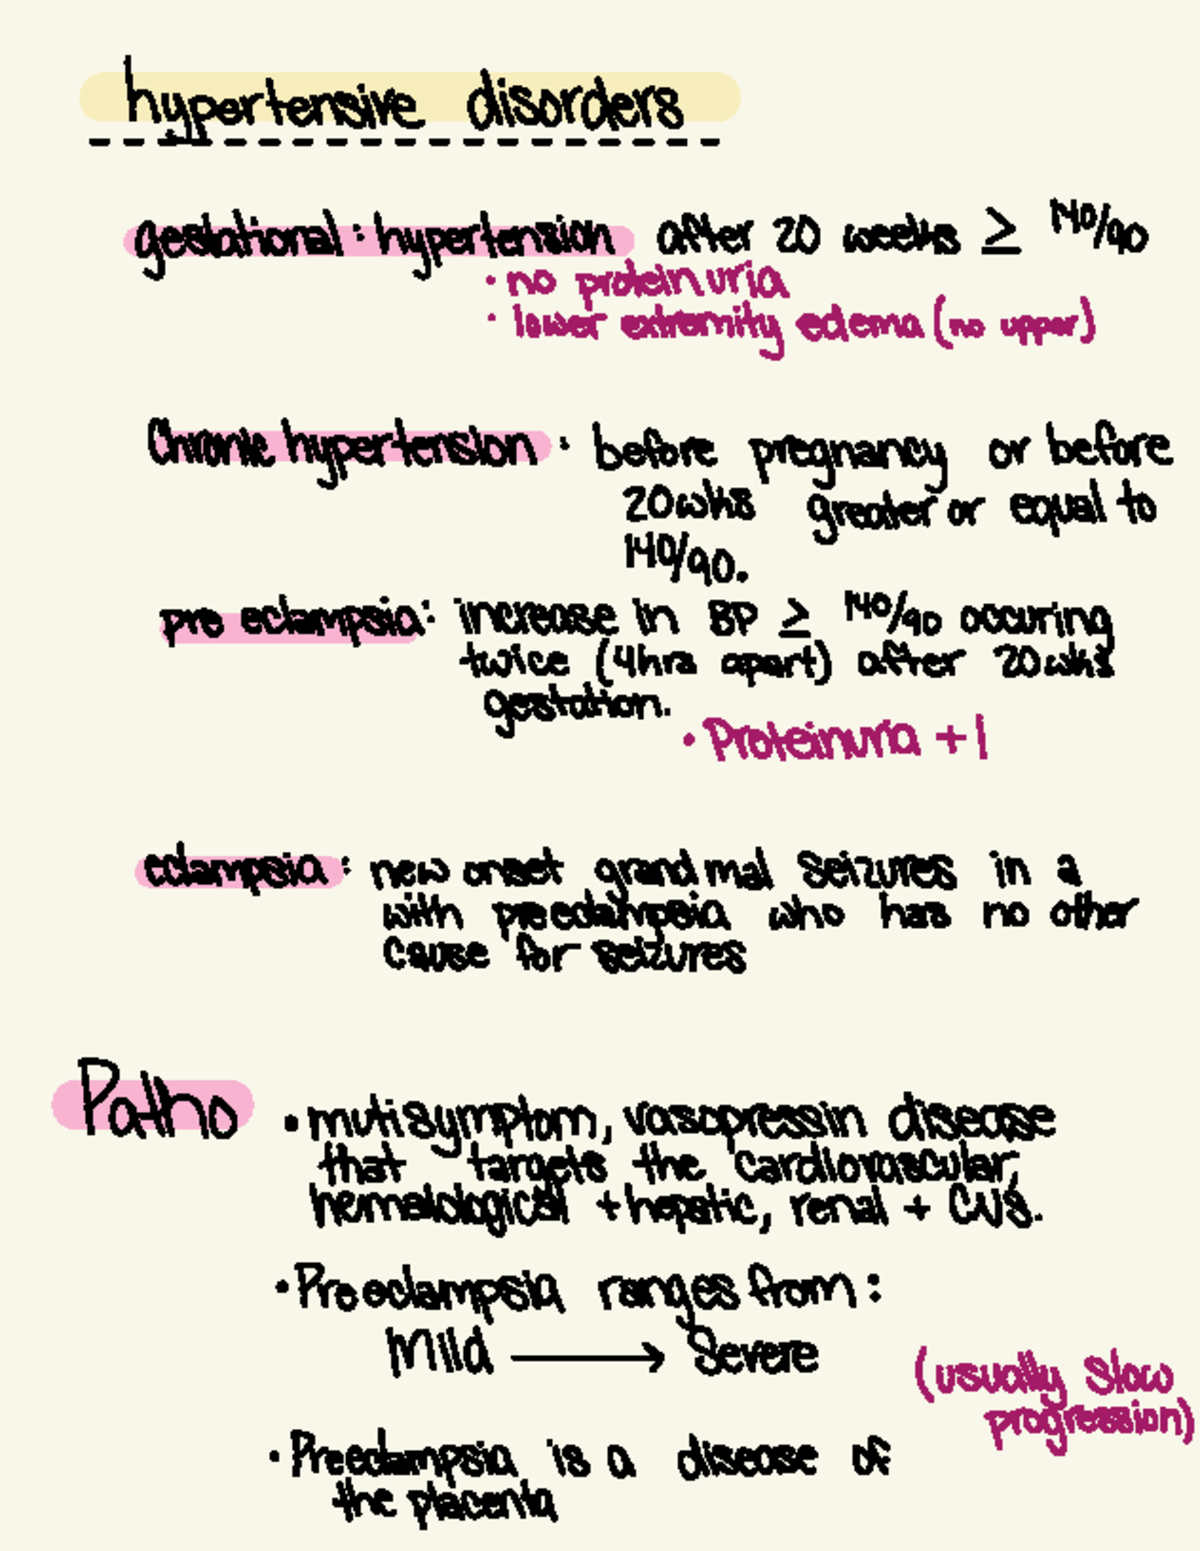 hypertensive disorders
gestational: hypertension after 20 weeks ≥ 140/90
• no proteinuria
• lower extremity edema (no upper)
Chronic hypertension: before pregnancy or before
20wks greater or equal to
140/90.
pre eclampsia: increase in BP ≥ 140/90 occuring
twice (4hrs apart) after 20wks
gestation.
• Proteinuria +1
eclampsia: new onset grand mal seizures in a
with preeclampsia who has no other
cause for seizures
Patho
• mutisymptom, vasopressin disease
that targets the cardiovascular,
hematological + hepatic, renal + CVS.
• Preeclampsia ranges from:
Mild → Severe
(usually slow
progression)
• Preeclampsia is a disease of
the placenta